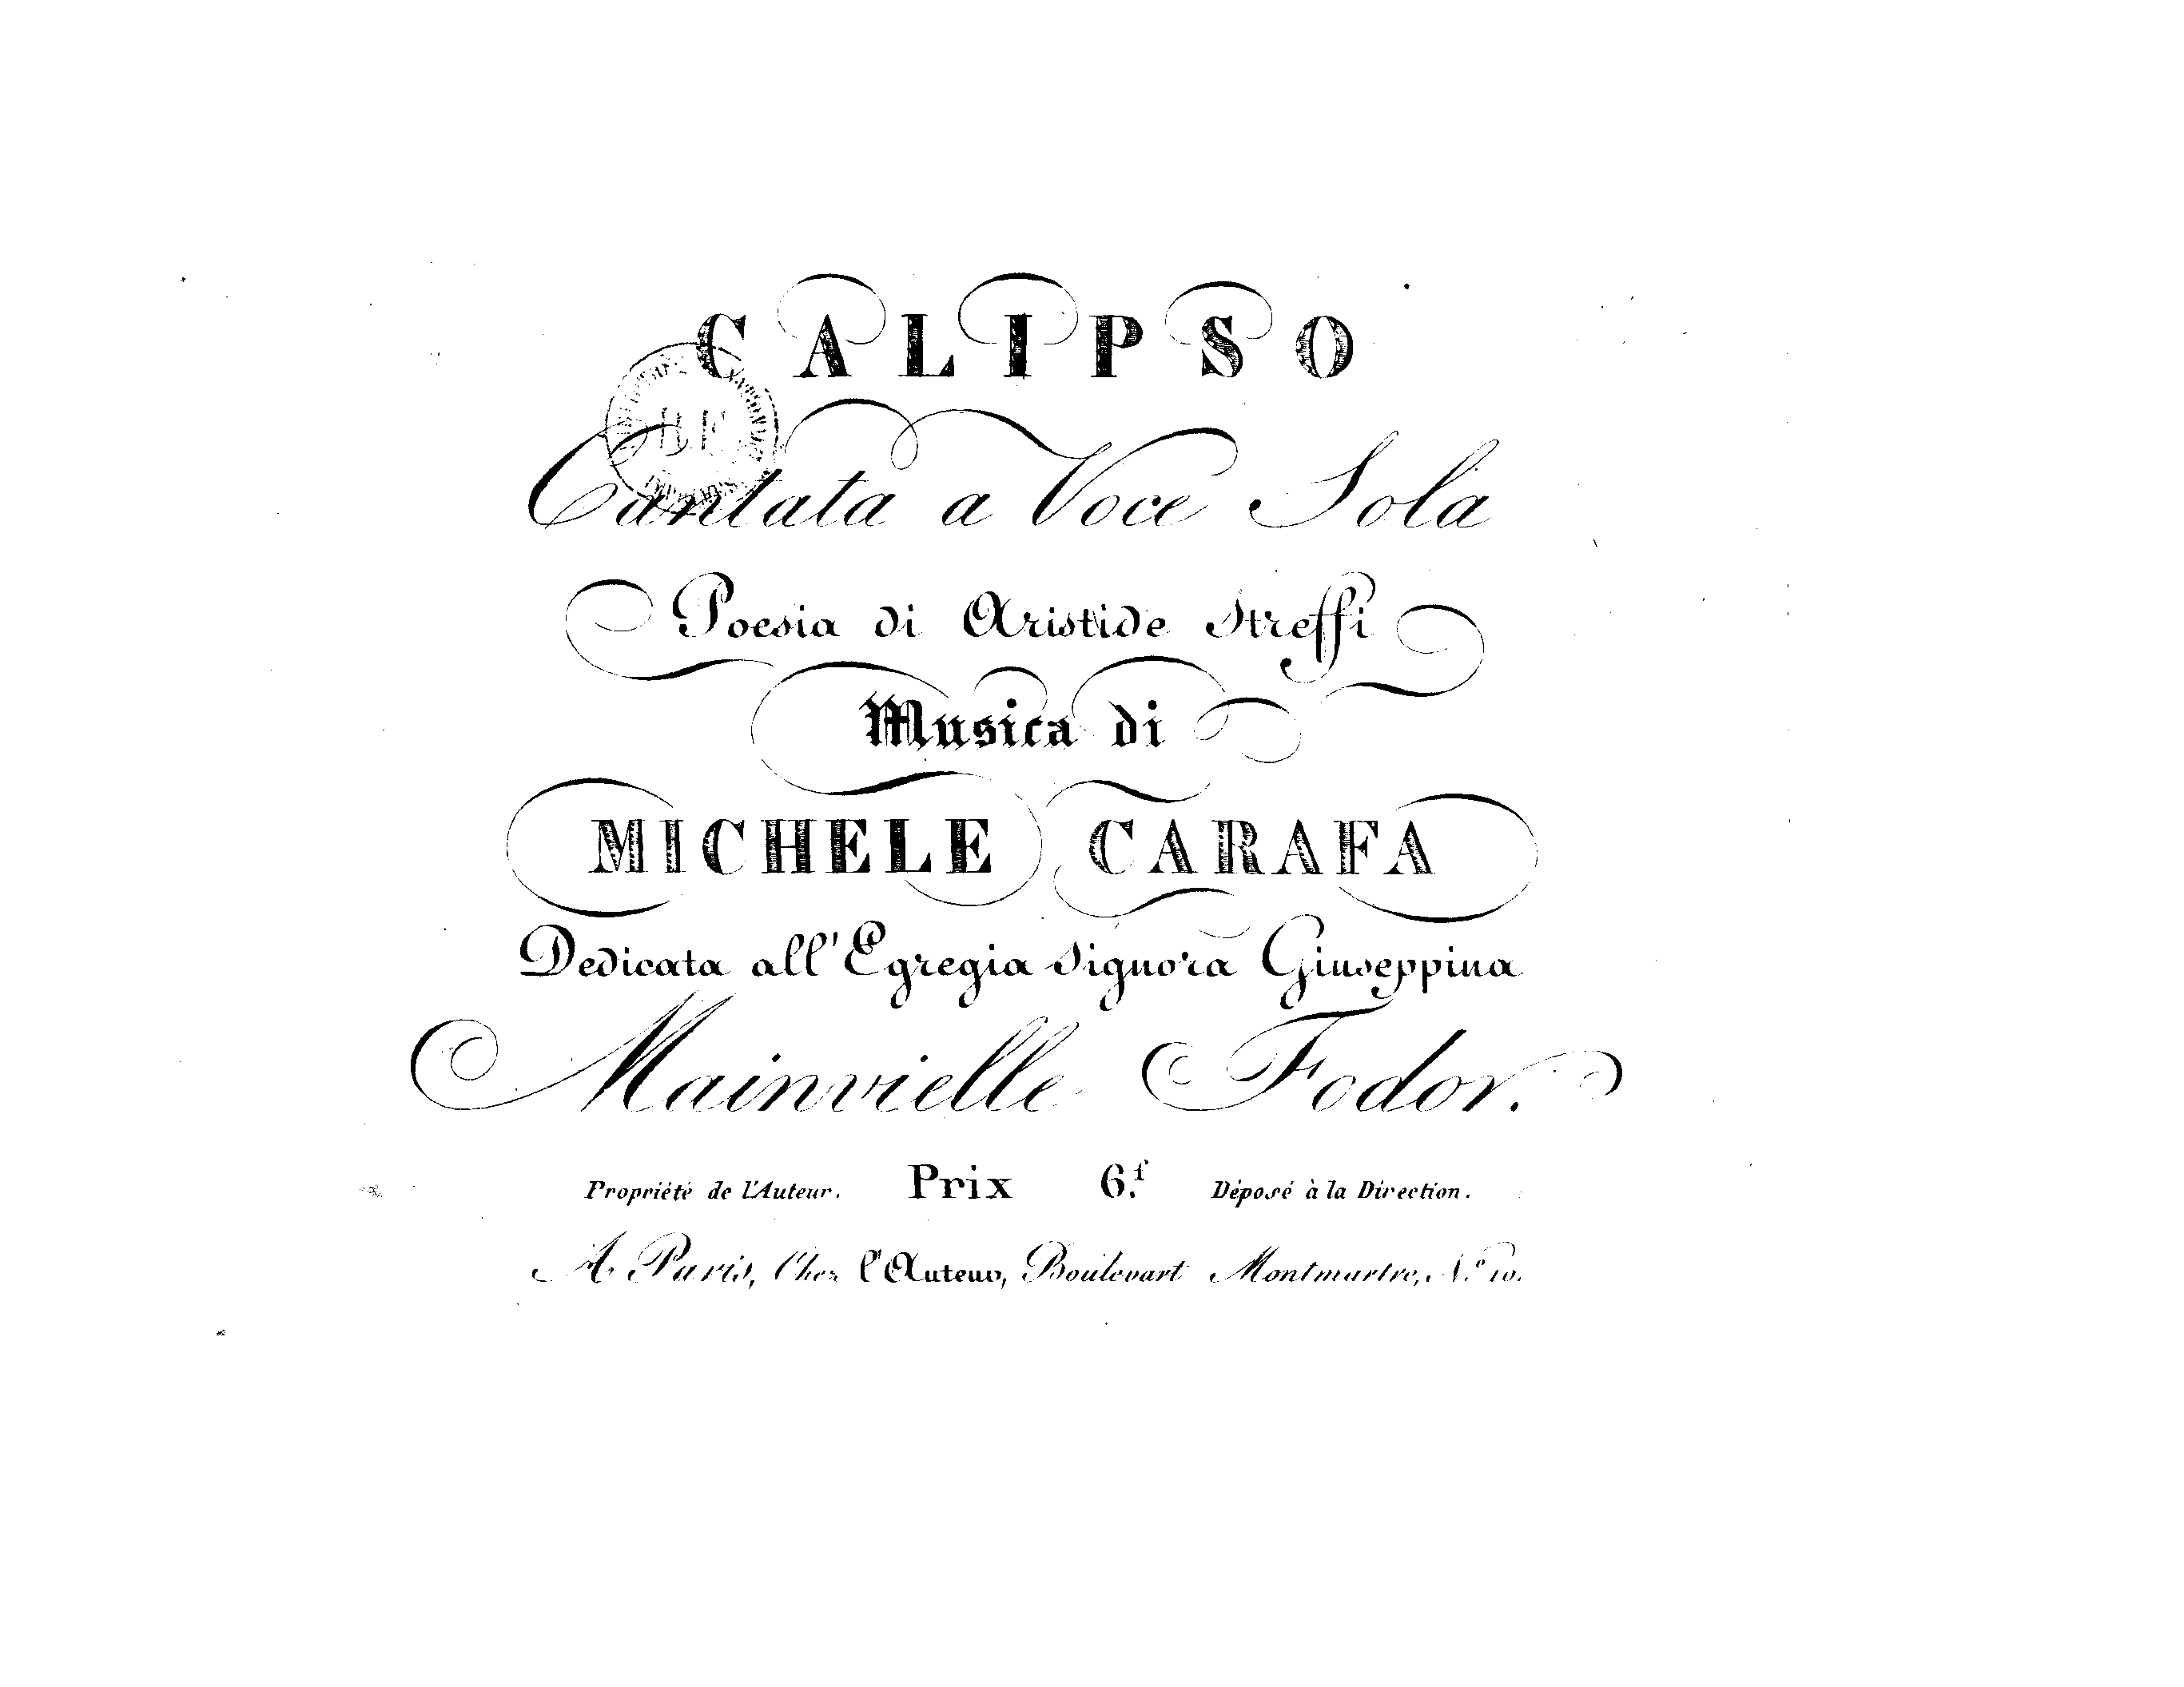 CALIPSO
Cantata a Voce Sola
Poesia di Aristide Streffi
Musica di
MICHELE CARAFA
Dedicata all' Egregia Signora Giuseppina
Mainvielle Fodor.
Propriété de l'Auteur. Prix 6.f Déposé à la Direction.
A Paris, Chez l'Auteur, Boulevart Montmartre, N.o 10.